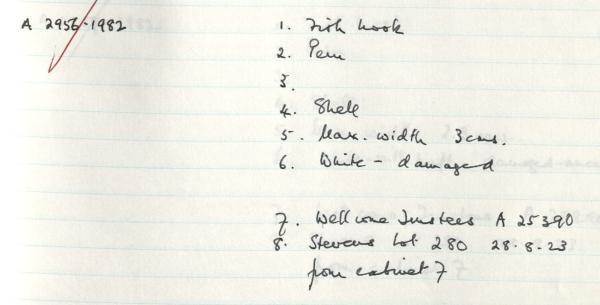 A 2956-1982
1. Fish hook
2. Peru
3.
4. Shell
5. Max. width 3cms.
6. White - damaged
7. Wellcome Trustees A 25390
8. Stevens Lot 280 28.8.23
from cabinet 7